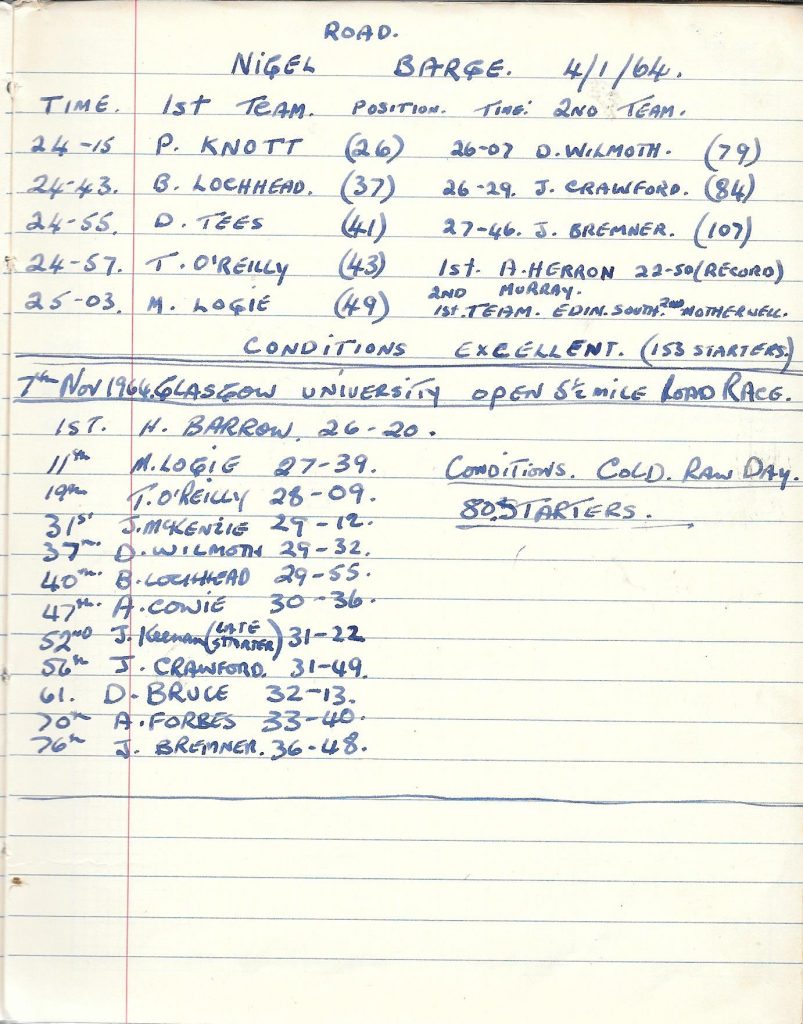 ROAD.
NIGEL BARGE. 4/1/64.
TIME. 1st TEAM. POSITION. TIME: 2ND TEAM.
24-15 P. KNOTT (26) 26-07 D. WILMOTH. (79)
24-43. B. LOCHHEAD. (37) 26-29. J. CRAWFORD. (84)
24-55. D. TEES (41) 27-46. J. BREMNER. (107)
24-57. T. O'REILLY (43) 1st. A. HERRON 22-50 (RECORD)
2ND MURRAY.
25-03. M. LOGIE (49) 1st. TEAM. EDIN. SOUTH. 2ND MOTHERWELL.
CONDITIONS EXCELLENT. (153 STARTERS.)
7th Nov 1964. GLASGOW UNIVERSITY OPEN 5½ MILE ROAD RACE.
1ST. H. BARROW. 26-20.
11th M. LOGIE 27-39. CONDITIONS. COLD. RAW DAY.
19th T. O'REILLY 28-09.
31st J. MCKENZIE 29-12. 80. STARTERS.
37th D. WILMOTH 29-32.
40th B. LOCHHEAD 29-55.
47th A. COWIE 30-36.
52ND J. Keenan (LATE STARTER) 31-22
56th J. CRAWFORD. 31-49.
61. D. BRUCE 32-13.
70th A. FORBES 33-40.
76th J. BREMNER. 36-48.